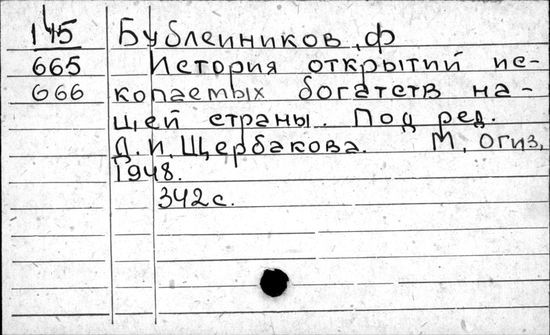 145 Бублейников, ф
665 История открытий ис-
666 копаемых богатств на-
шей страны. Под ред.
Д.И. Щербакова. М, Огиз,
1948.
342 с.